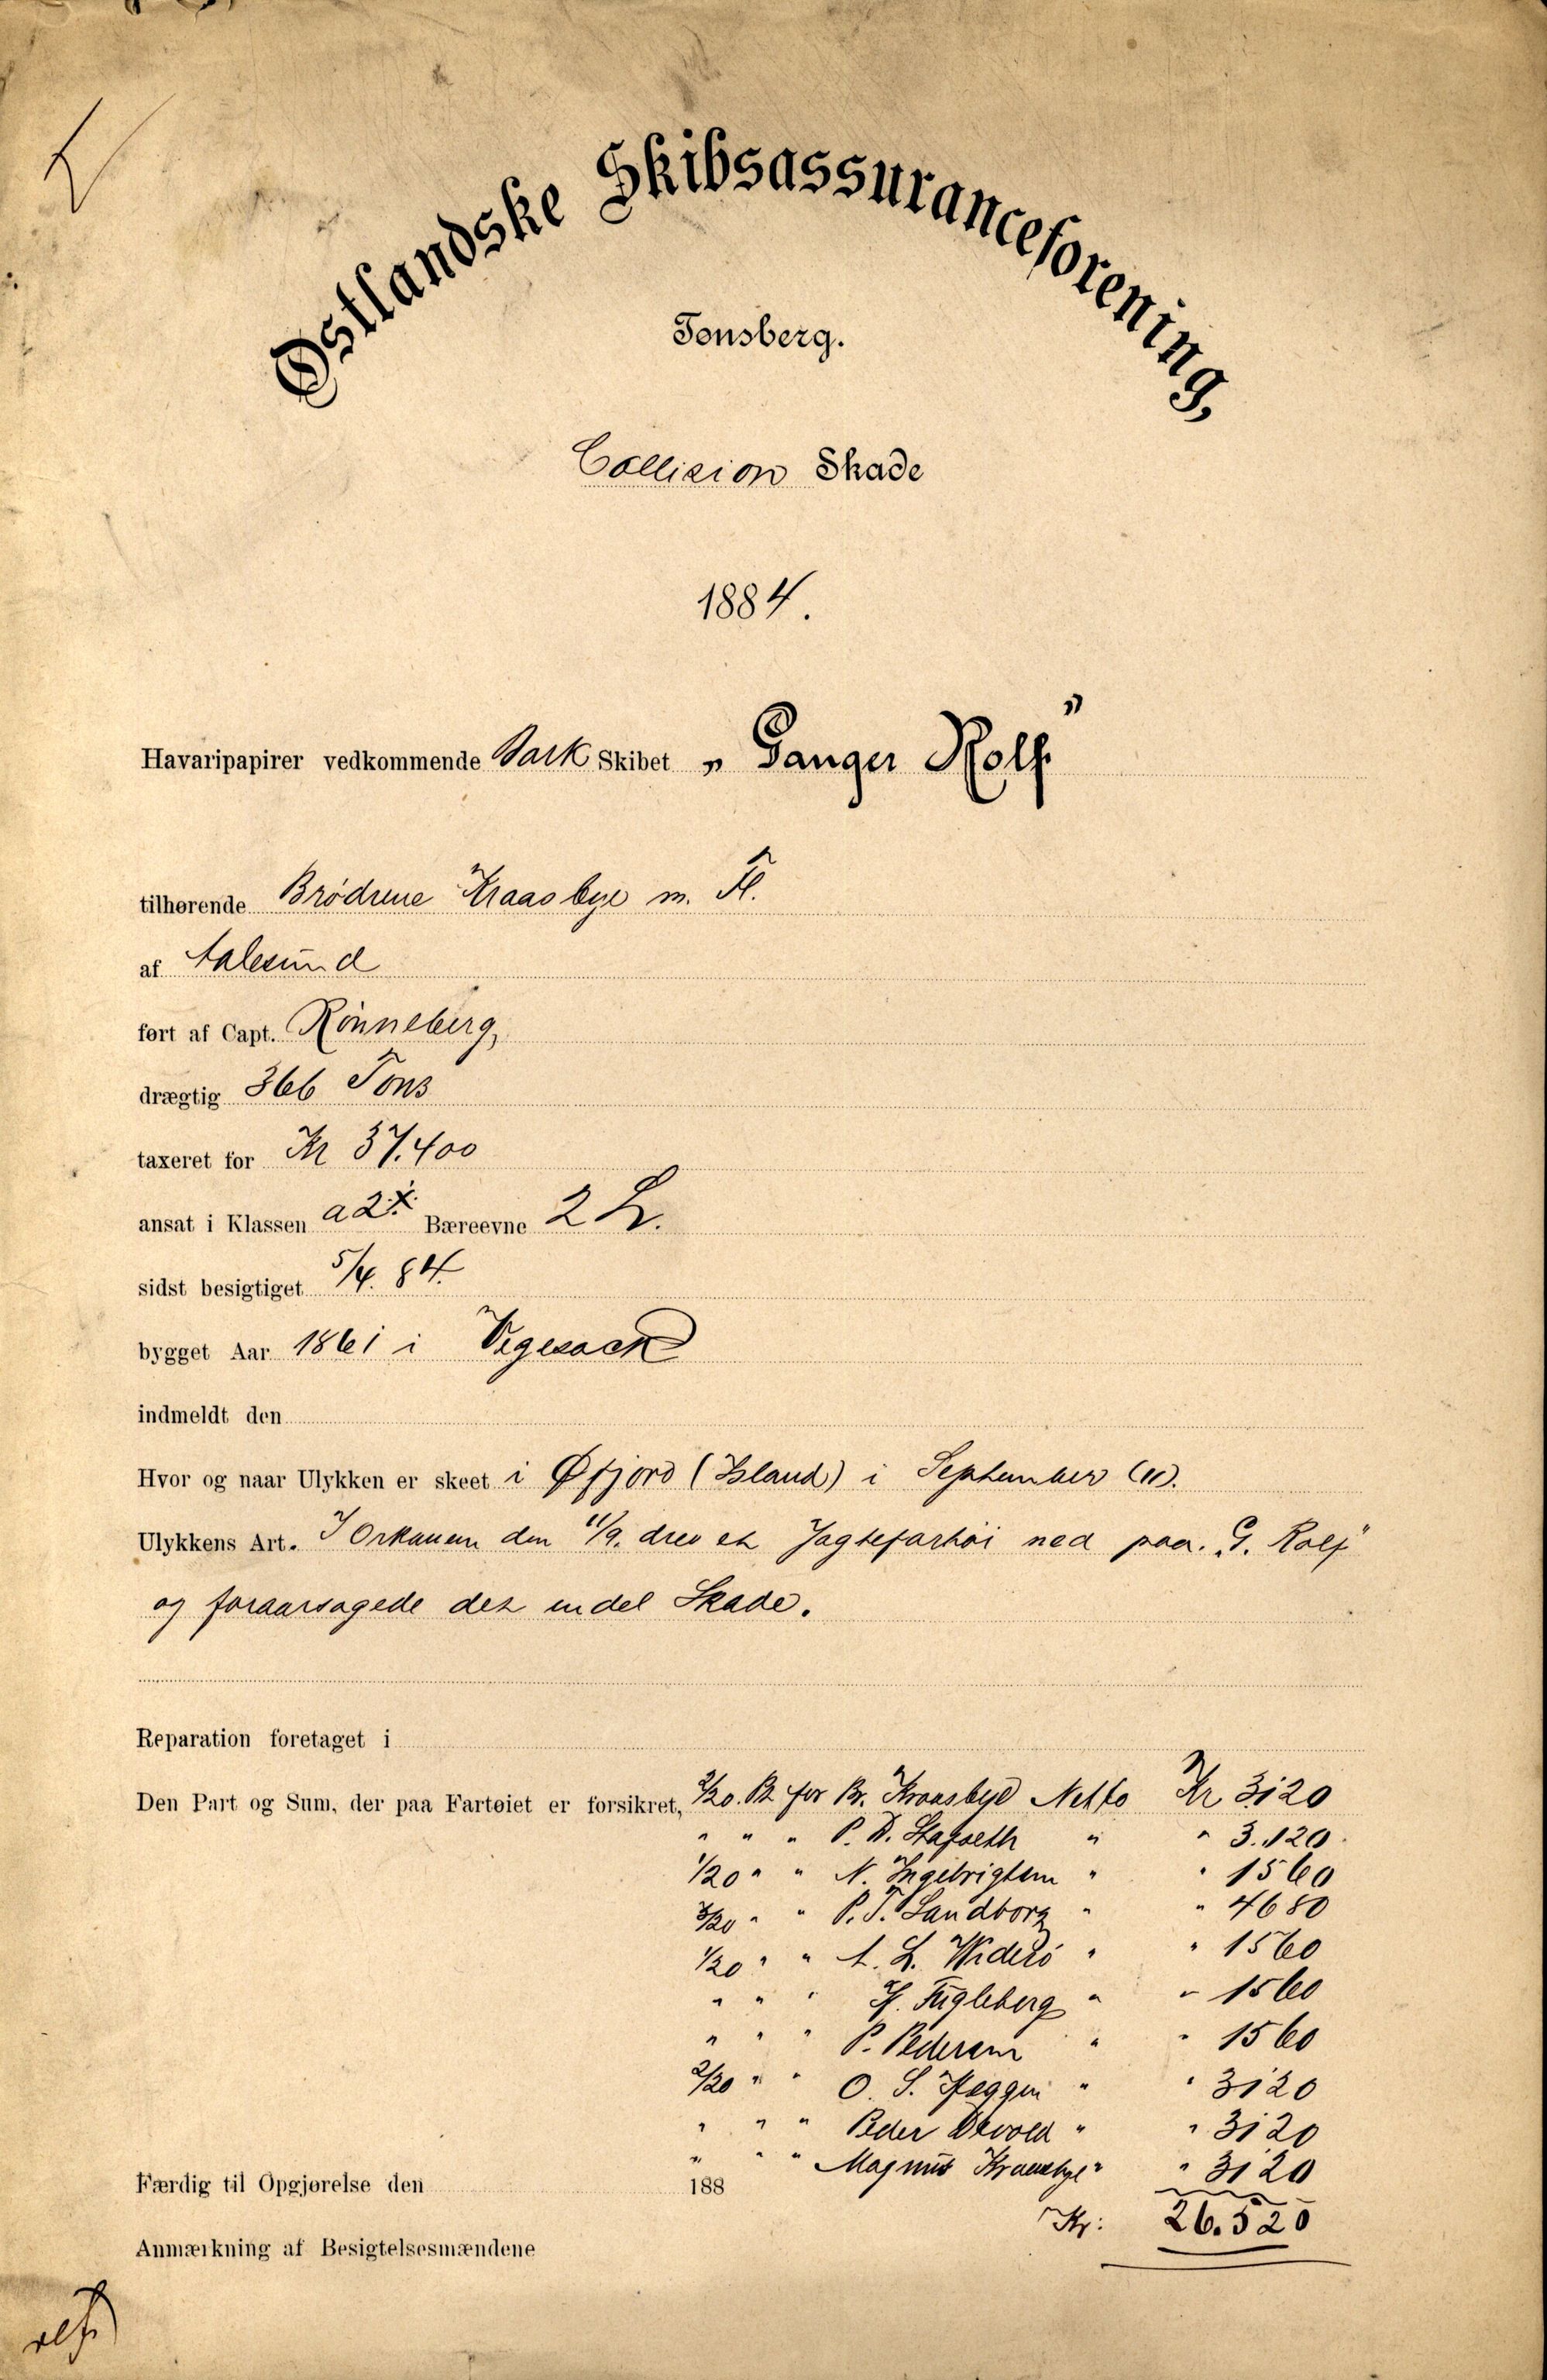 Østlandske Skibsassuranceforening,
Tønsberg.
Collision Skade
1884.
Havaripapirer vedkommende Bark Skibet „Ganger Rolf"
tilhørende Brödrene Kraasbye m. Fl.
af Aalesund
ført af Capt. Rönneberg,
drægtig 366 Tons
taxeret for Kr 37.400
ansat i Klassen a2 Bæreevne 2 L.
sidst besigtiget 5/4. 84.
bygget Aar 1861 i Vegesack
indmeldt den
Hvor og naar Ulykken er skeet i Øfjord (Island) i September (11).
Ulykkens Art. I Orkanen den 11/9. drev et Jagtefartöi ned paa „G. Rolf"
og foraarsagede det endel Skade.
Reparation foretaget i
Den Part og Sum, der paa Fartøiet er forsikret, 2/20. P. for Br. Kraasbye Netto Kr 3120
" " " P. D. Stafseth " " 3.120.
1/20 " " N. Ingebrigtsen " " 1560
3/20 " " P. T. Sandborg " " 4680
1/20 " " A. L. Wideró " " 1560
" " " H. Fugleberg " " 1560
" " " P. Pedersen " " 1560
2/20 " " O. S. Heggen " " 3120
" " " Peder Devold " " 3120
" " " Magnus Kraasbye " " 3120
Færdig til Opgjørelse den 188
Kr: 26.520
Anmærkning af Besigtelsesmændene